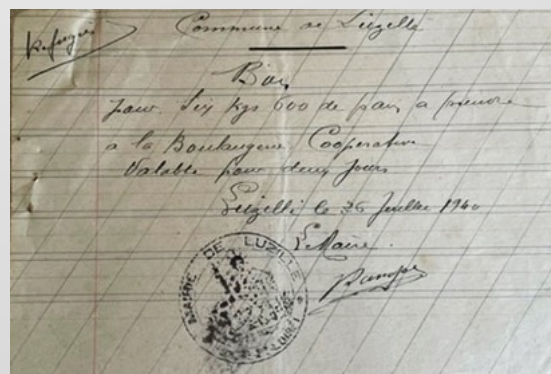 Réfugiés
Commune de Luzillé
Bon
pour Six kgs 600 de pain a prendre
a la Boulangerie Cooperative
Valable pour deux jours
Luzillé le 26 Juillet 1940
Le Maire
MAIRIE DE LUZILLÉ